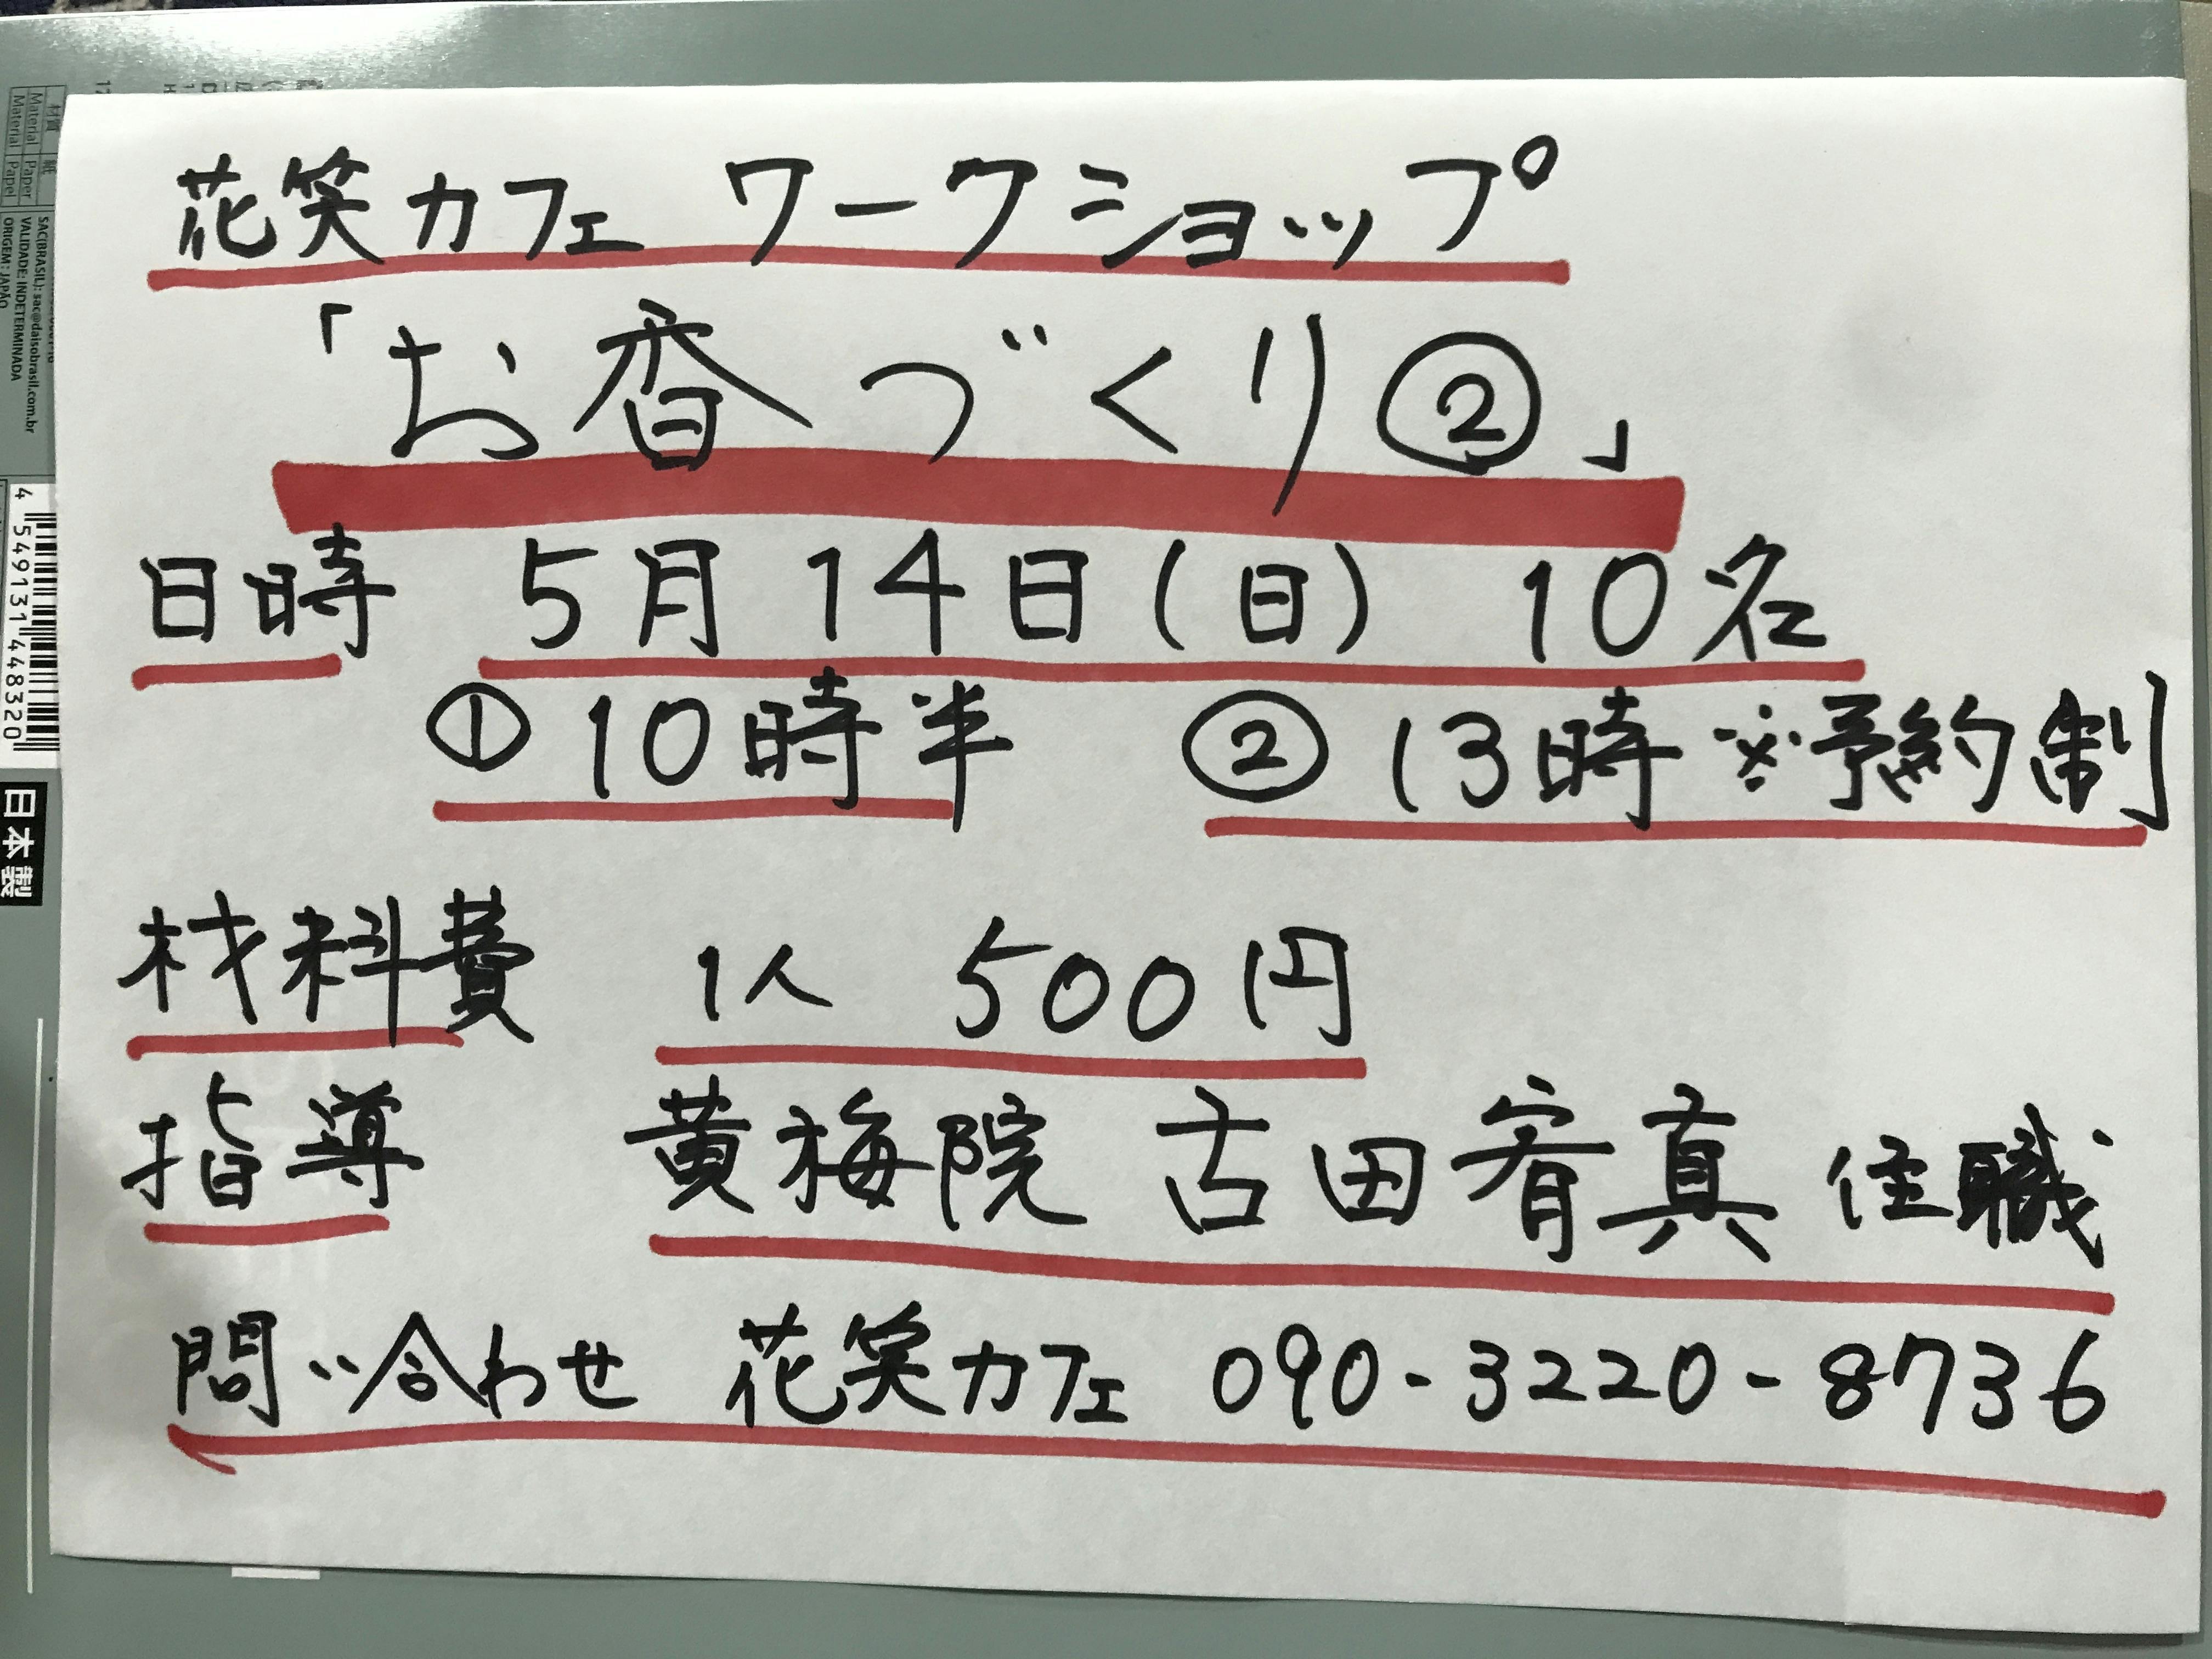 花笑カフェ ワークショップ
「お香づくり②」
日時 5月14日(日) 10名
①10時半 ②13時 ※予約制
材料費 1人 500円
指導 黄梅院 古田宥真 住職
問い合わせ 花笑カフェ 090-3220-8736
材質 紙
Material Paper
Material Paper
SAC(BRASIL): sac@daisobrasil.com.br
VALIDADE: INDETERMINADA
ORIGEM: JAPÃO
4 549131 448320
日本製